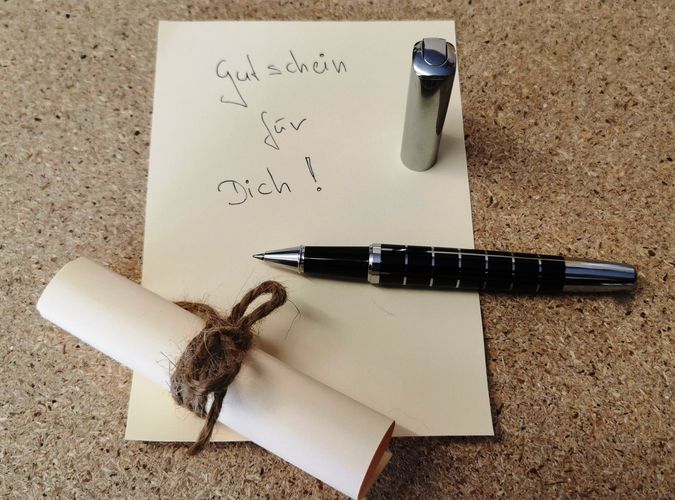 Gutschein
für
Dich!